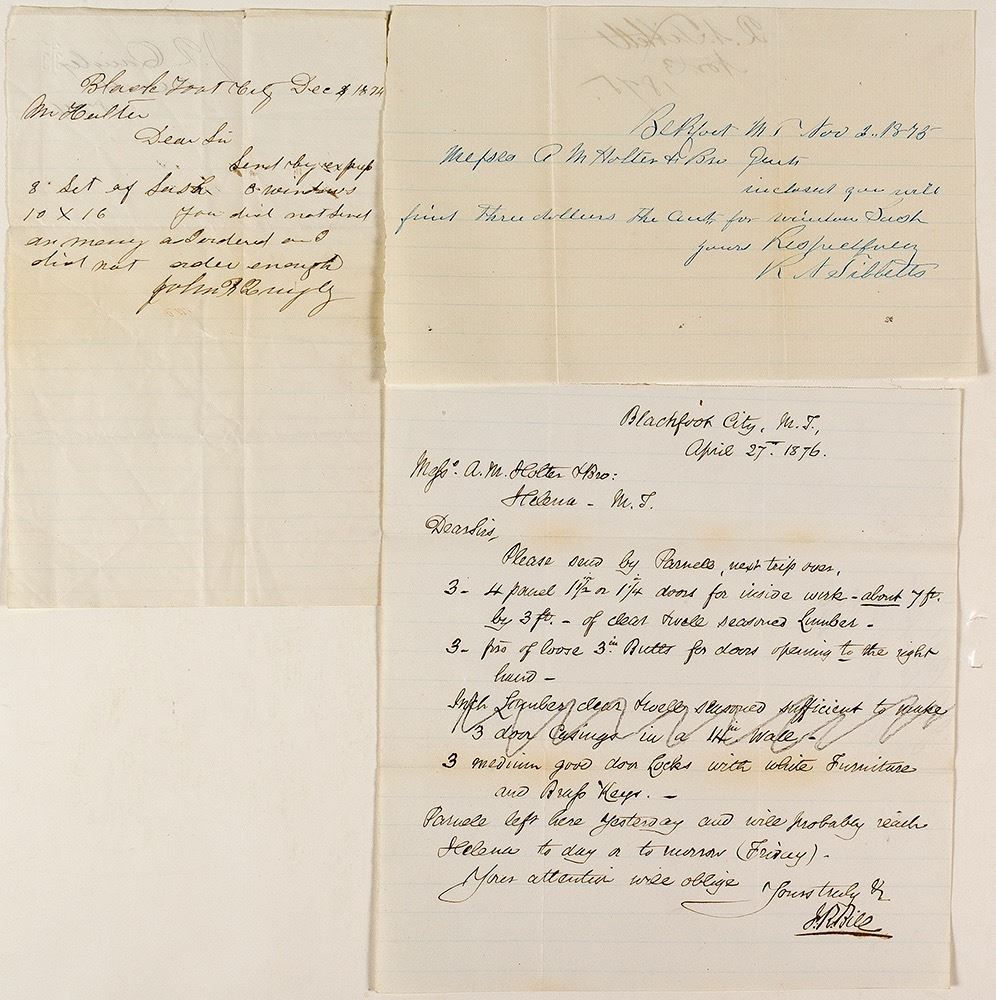 Black Foot City Dec 1874
Mr Holter
Dear Sir
Send by express
8 Set of Sash 3 windows
10 X 16 You did not Send
as many as I ordered and I
did not order enough
John R Quigly
Belkfoot M T Nov 3. 1875
Messrs A M Holter & Bro Gents
inclosed you will
find Three dollers the amt for window Sash
yours Respectfuly
R N Tibbetts
Blackfoot City, M. T.,
April 27th. 1876.
Messrs. A. M. Holter & Bro:
Helena - M. T.
Dear Sirs,
Please send by Parnele, next trip over,
3 - 4 panel 1 1/2 or 1 1/4 doors for inside work - about 7 ft.
by 3 ft. - of clear & well seasoned Lumber -
3 - prs of loose 3 in Butts for doors opening to the right
hand -
Inch Lumber clear & well seasoned sufficient to make
3 door Casings in a 14 in wall -
3 medium good door Locks with white Furniture
and Brass Keys. -
Parnele left here yesterday and will probably reach
Helena to day or to morrow (Friday) -
Your attention will oblige Yours truly &c
J. R. Bill
R. N. Tibbetts
Nov 3
1875
J. R. Quigley